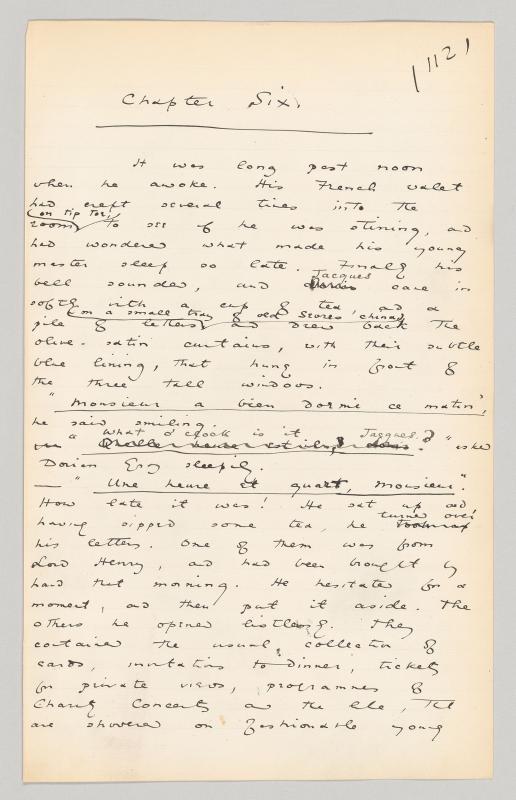 112
Chapter Six.
It was long past noon
when he awoke. His French valet
had crept several times into the
on tip toe,
room to see if he was stirring, and
had wondered what made his young
master sleep so late. Finally his
Jacques
bell sounded, and came in
softly with a cup of tea and a
on a small tray of old Sèvres china,
pile of letters and drew back the
olive-satin curtains, with their subtle
blue lining, that hung in front of
the three tall windows.
"Monsieur a bien dormi ce matin",
he said smiling.
What o'clock is it Jacques?
— " Quelle heure est-il, " asked
Dorian Gray sleepily.
— "Une heure et quart, monsieur."
How late it was! He sat up and
turned over
having sipped some tea, he
his letters. One of them was from
Lord Henry, and had been brought by
hand that morning. He hesitated for a
moment, and then put it aside. The
others he opened listlessly. They
contained the usual collection of
cards, invitations to dinner, tickets
for private views, programmes of
Charity Concerts and the like, that
are showered on fashionable young